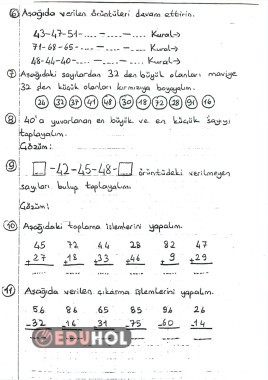 6) Aşağıda verilen örüntüleri devam ettirin.
43-47-51-...-...-... Kural→
71-68-65-...-...-... Kural→
48-44-40-...-...-... Kural→
7) Aşağıdaki sayılardan 32 den büyük olanları maviye
32 den küçük olanları kırmızıya boyayalım.
24 33 37 41 48 30 18 72 28 91 16
8) 40'a yuvarlanan en büyük ve en küçük sayıyı
toplayalım.
Çözüm:
9) □-42-45-48-□ örüntüdeki verilmeyen
sayıları bulup toplayalım.
Çözüm:
10) Aşağıdaki toplama işlemlerini yapalım.
45 72 44 28 82 47
+27 +18 +33 +46 +9 +29
11) Aşağıda verilen çıkarma işlemlerini yapalım.
56 86 65 85 96 26
-32 -16 -31 -75 -60 -14
EDUHOL